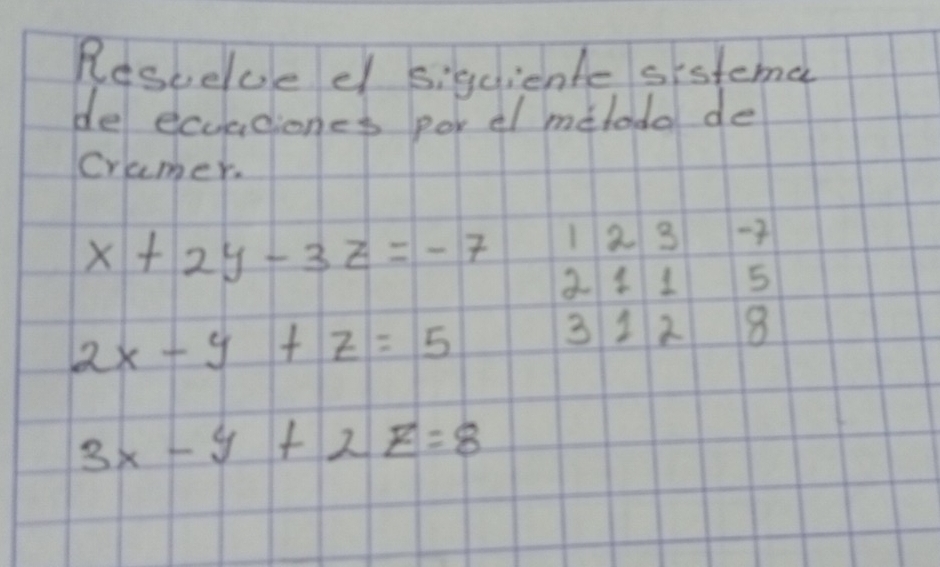 Resuelve el siguiente sistema
de ecuaciones por el método de
Cramer.
x + 2y - 3z = -7 1 2 3 -7
2 1 1 5
2x - y + z = 5 3 1 2 8
3x - y + 2z = 8